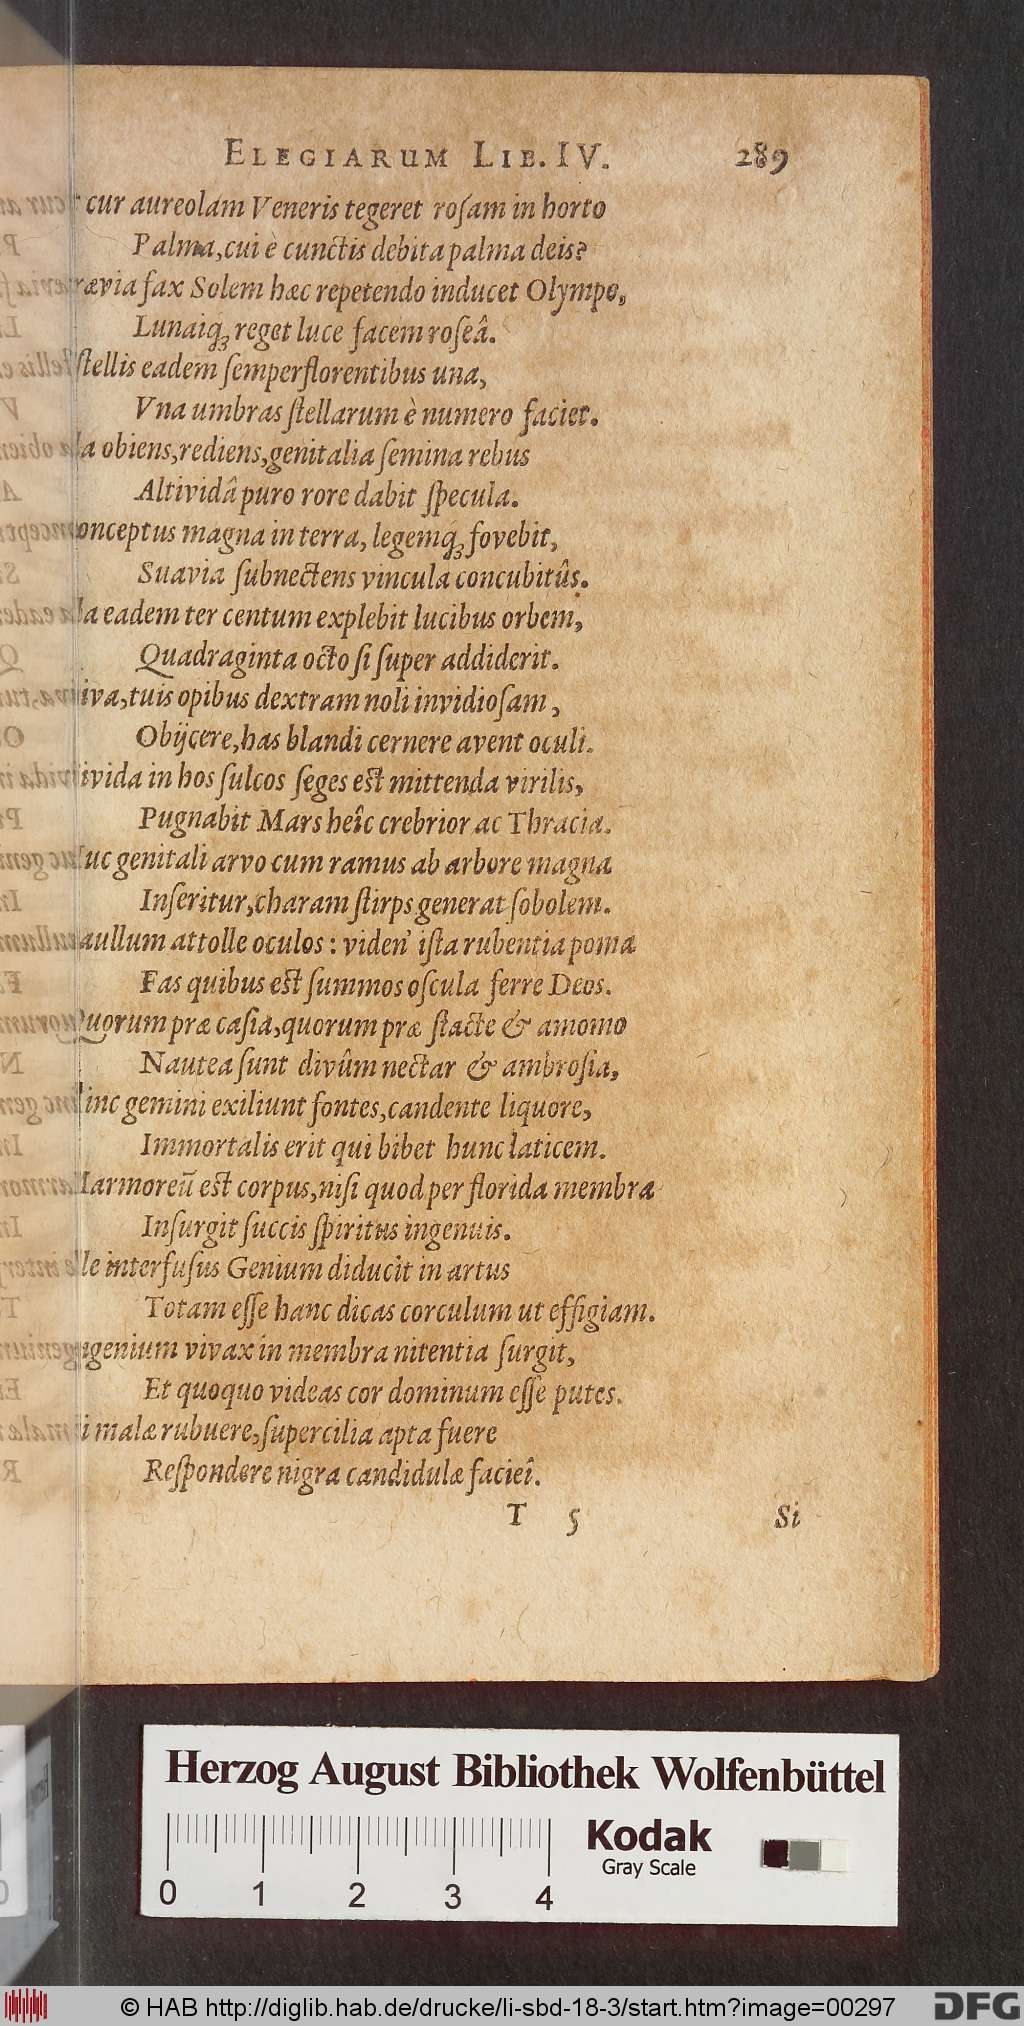 ELEGIARUM LIB. IV. 289
cur aureolam Veneris tegeret roſam in horto
Palma, cui è cunctis debita palma deis?
prævia fax Solem hæc repetendo inducet Olympo,
Lunaiq́ꝫ reget luce facem roſeâ.
ſtellis eadem ſemperflorentibus una,
Vna umbras ſtellarum è numero faciet.
obiens, rediens, genitalia ſemina rebus
Altividâ puro rore dabit ſpecula.
conceptus magna in terra, legemq́ꝫ fovebit,
Suavia ſubnectens vincula concubitûs.
eadem ter centum explebit lucibus orbem,
Quadraginta octo ſi ſuper addiderit.
tuis opibus dextram noli invidioſam,
Obijcere, has blandi cernere avent oculi.
in hos ſulcos ſeges eſt mittenda virilis,
Pugnabit Mars heîc crebrior ac Thracia.
Huc genitali arvo cum ramus ab arbore magna
Inſeritur, charam ſtirps generat ſobolem.
Paullum attolle oculos: viden' iſta rubentia poma
Fas quibus eſt ſummos oſcula ferre Deos.
Quorum præ caſia, quorum præ ſtacte & amomo
Nautea ſunt divûm nectar & ambroſia,
Hinc gemini exiliunt fontes, candente liquore,
Immortalis erit qui bibet hunc laticem.
Marmoreũ eſt corpus, niſi quod per florida membra
Inſurgit ſuccis ſpiritus ingenuis.
Ille interfuſus Genium diducit in artus
Totam eſſe hanc dicas corculum ut effigiam.
Ingenium vivax in membra nitentia ſurgit,
Et quoquo videas cor dominum eſſe putes.
malæ rubuere, ſupercilia apta fuere
Reſpondere nigra candidulæ faciei.
T 5 Si
Herzog August Bibliothek Wolfenbüttel
Kodak
Gray Scale
0 1 2 3 4
© HAB http://diglib.hab.de/drucke/li-sbd-18-3/start.htm?image=00297 DFG